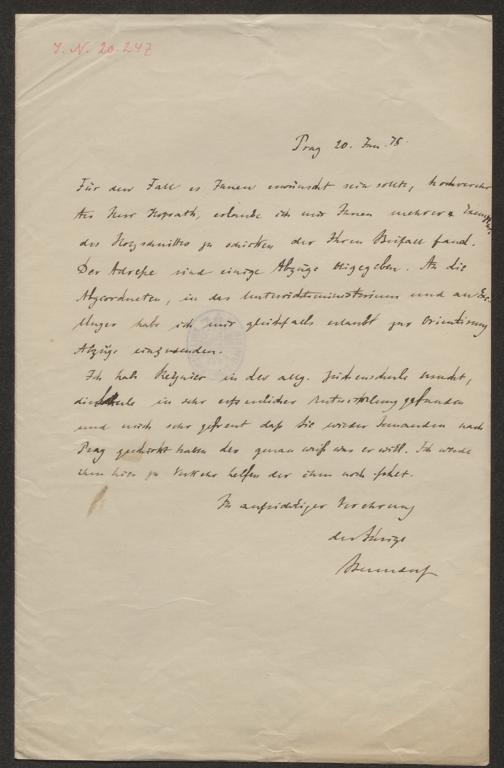 J. N. 20.247
Prag 20. Jan. 78.
Für den Fall es Ihnen erwünscht sein sollte, hochverehr
ter Herr Hofrath, erlaube ich mir Ihnen mehrere Exempl.
des Holzschnittes zu schicken der Ihren Beifall fand.
Der Adresse sind einige Abzüge beigegeben. An die
Abgeordneten, in das Unterrichtsministerium und an Exc.
Unger habe ich mir gleichfalls erlaubt zur Orientirung
Abzüge einzusenden.
Ich habe in der allg. besucht,
die Schule in sehr erfreulicher Entwicklung gefunden
und mich sehr gefreut daß Sie wieder Jemanden nach
Prag geschickt haben der genau weiß was er will. Ich werde
ihm hier zu Verkehr helfen der ihm noch fehlt.
In aufrichtiger Verehrung
der Ihrige
Benndorf